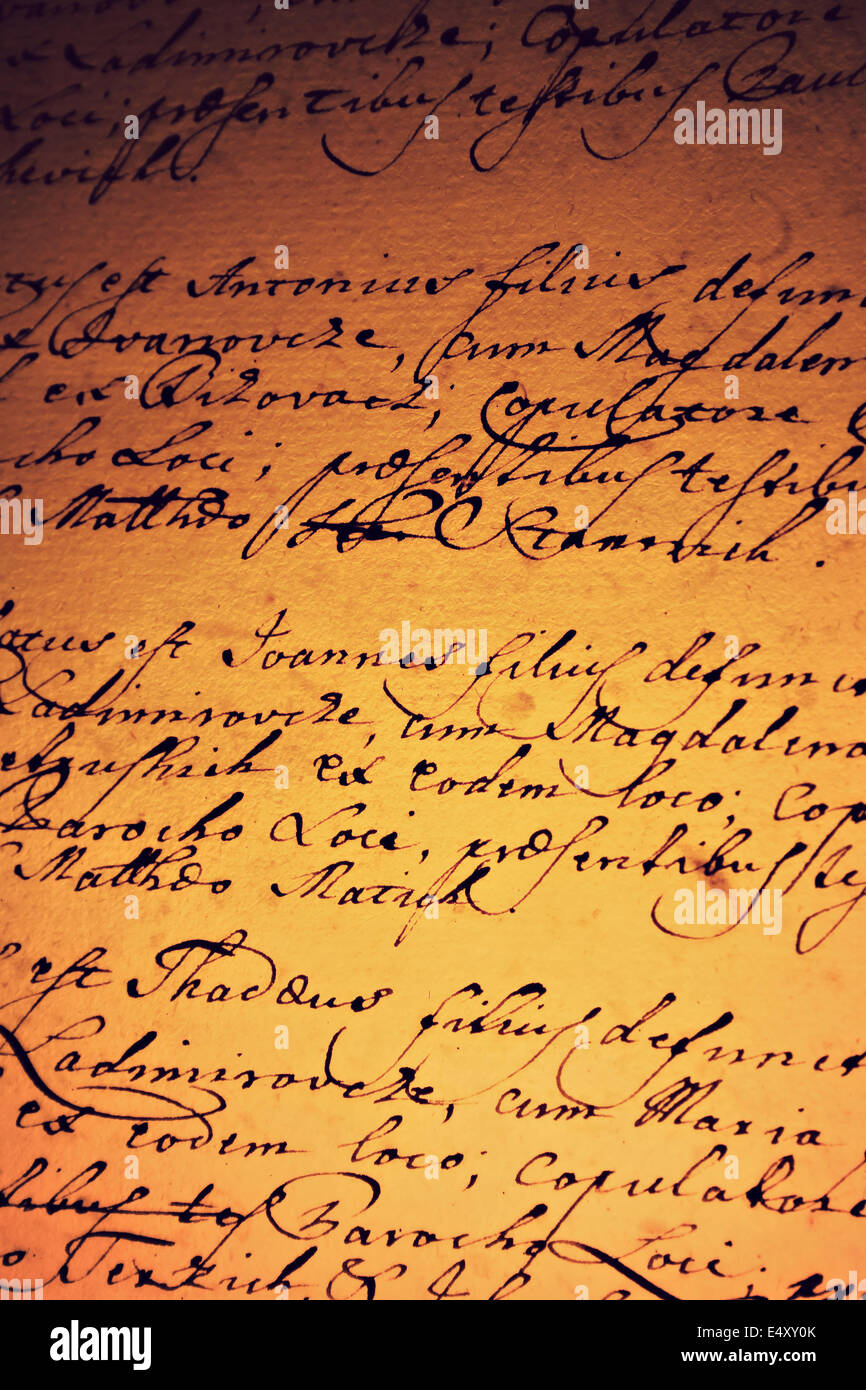 Ladimirovcze; Copulatore
Loci; præsentibus testibus Paul
est Antonius filius defun
Ivanovcze, cum Magdalem
ex Bizovacz; Copulatore
cho Loci; præsentibus testibu
Matthæo
atus est Joannes filius defunc
Ladimirovcze, cum Magdalena
ex eodem loco; Cop
Parocho Loci, præsentibus te
Matthæo Matich
est Thadæus filius defunct
Ladimirovcze, cum Maria
ex eodem loco; Copulatore
tibus tes Parocho Loci;
Terzich, &
alamy
Image ID: E4XY0K
www.alamy.com